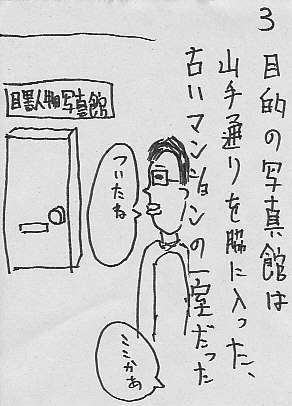 3
目的の写真館は
山手通りを脇に入った、
古いマンションの一室だった
目黒人物写真館
ついたね
ここかあ